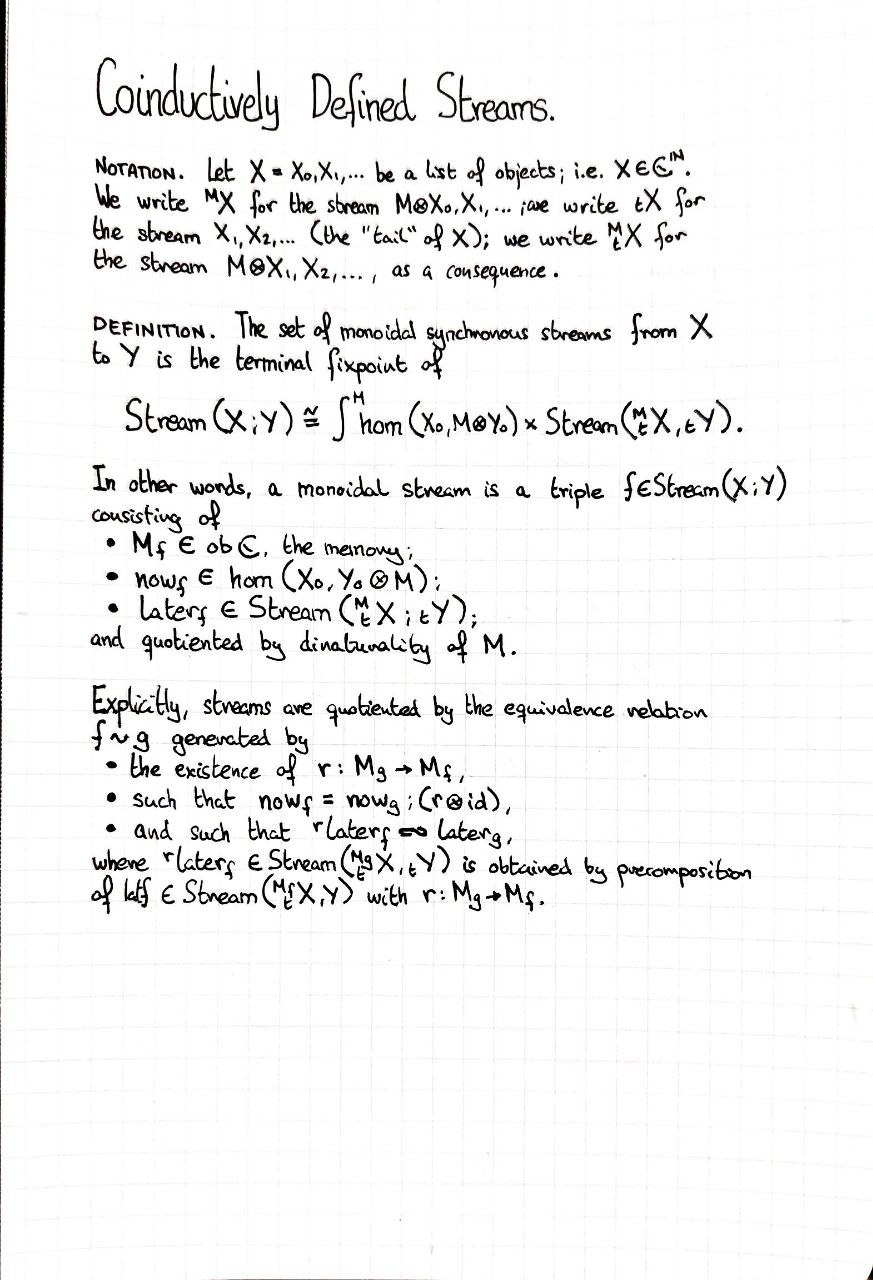 Coinductively Defined Streams.
NOTATION. Let X = X₀,X₁,... be a list of objects; i.e. X∈ℂᴺ.
We write ᴹX for the stream M⊗X₀,X₁,... ; we write tX for
the stream X₁,X₂,... (the "tail" of X); we write ᴹₜX for
the stream M⊗X₁,X₂,..., as a consequence.
DEFINITION. The set of monoidal synchronous streams from X
to Y is the terminal fixpoint of
Stream(X;Y) ≅ ∫ᴹ hom(X₀,M⊗Y₀) × Stream(ᴹₜX,tY).
In other words, a monoidal stream is a triple f∈Stream(X;Y)
consisting of
• M_f ∈ obℂ, the memory;
• now_f ∈ hom(X₀,Y₀⊗M);
• later_f ∈ Stream(ᴹₜX;tY);
and quotiented by dinaturality of M.
Explicitly, streams are quotiented by the equivalence relation
f~g generated by
• the existence of r: M_g → M_f,
• such that now_f = now_g;(r⊗id),
• and such that ʳlater_f ∞ later_g,
where ʳlater_f ∈ Stream(ᴹgₜX,tY) is obtained by precomposition
of ∈ Stream(ᴹfₜX,Y) with r: M_g→M_f.